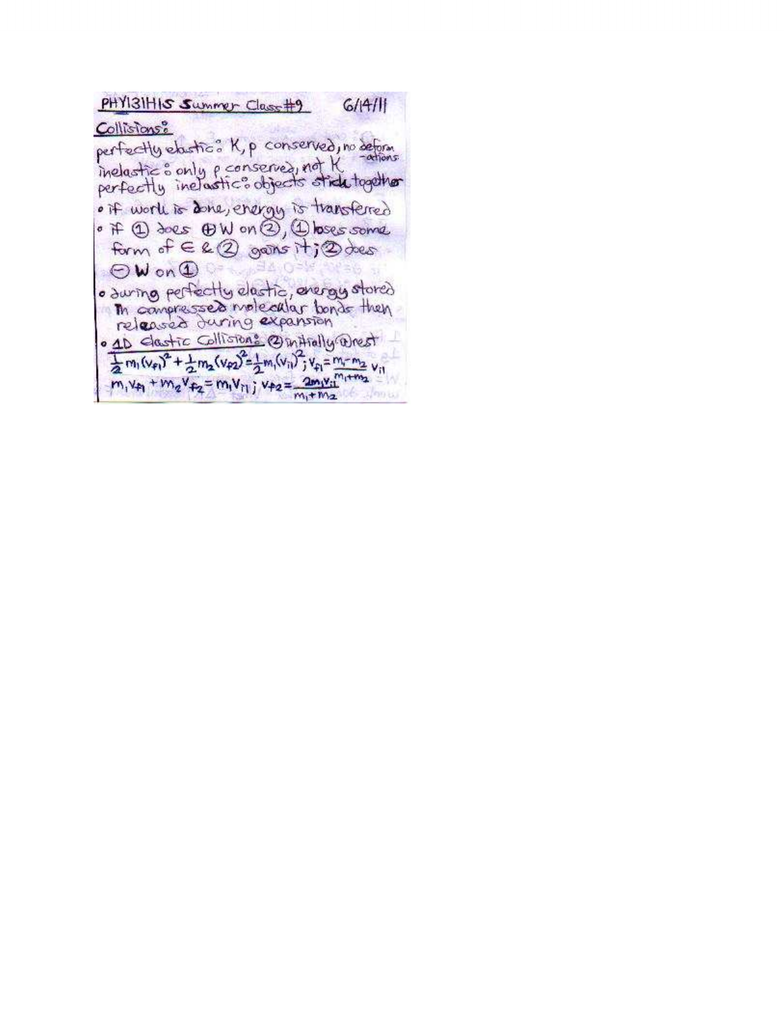 PHY131H1S Summer Class #9 6/14/11
Collisions:
perfectly elastic: K, p conserved, no deform
-ations
inelastic: only p conserved, not K
perfectly inelastic: objects stick together
• if work is done, energy is transferred
• if ① does ⊕ W on ②, ① loses some
form of E & ② gains it; ② does
⊖ W on ①
• during perfectly elastic, energy stored
in compressed molecular bonds then
released during expansion
• 1D Elastic Collision: ② initially @ rest
½ m₁(vf1)² + ½ m₂(vf2)² = ½ m₁(vi1)²; vf1 = (m₁-m₂)/(m₁+m₂) vi1
m₁vf1 + m₂vf2 = m₁vi1; vf2 = 2m₁vi1/(m₁+m₂)